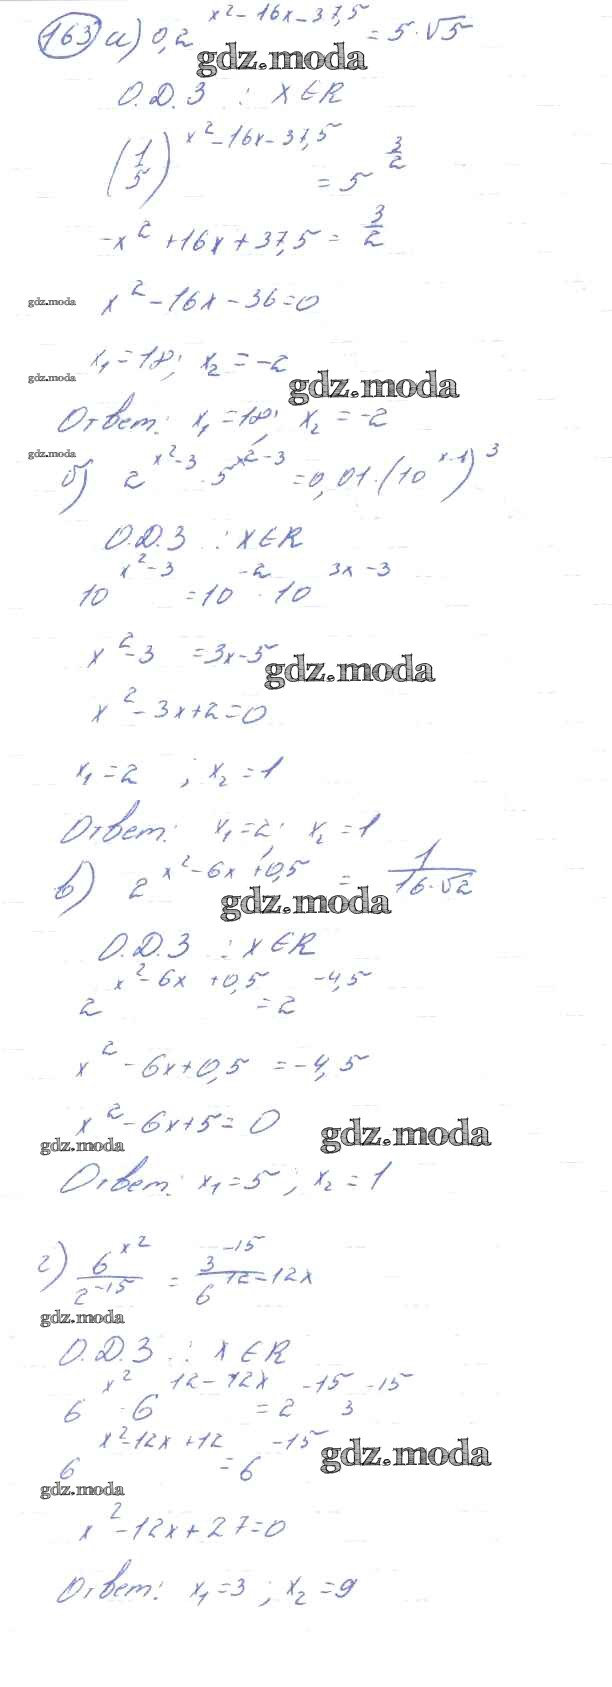 163 а) 0,2^(x²-16x-37,5) = 5·√5
gdz.moda
О.Д.З : x∈R
(1/5)^(x²-16x-37,5) = 5^(3/2)
-x² + 16x + 37,5 = 3/2
gdz.moda x² - 16x - 36 = 0
x₁ = 18; x₂ = -2
gdz.moda gdz.moda
Ответ: x₁ = 18; x₂ = -2
gdz.moda
б) 2^(x²-3) · 5^(x²-3) = 0,01·(10^(x-1))³
О.Д.З : x∈R
10^(x²-3) = 10^(-2) · 10^(3x-3)
x² - 3 = 3x - 5
gdz.moda
x² - 3x + 2 = 0
x₁ = 2 ; x₂ = 1
Ответ: x₁ = 2; x₂ = 1
в) 2^(x²-6x+0,5) = 1/(16·√2)
gdz.moda
О.Д.З : x∈R
2^(x²-6x+0,5) = 2^(-4,5)
x² - 6x + 0,5 = -4,5
x² - 6x + 5 = 0
gdz.moda gdz.moda
Ответ: x₁ = 5 ; x₂ = 1
г) 6^(x²)/2^(-15) = 3^(-15)/6^(12-12x)
gdz.moda
О.Д.З : x∈R
6^(x²) · 6^(12-12x) = 2^(-15) 3^(-15)
6^(x²-12x+12) = 6^(-15)
gdz.moda
gdz.moda
x² - 12x + 27 = 0
Ответ: x₁ = 3 ; x₂ = 9